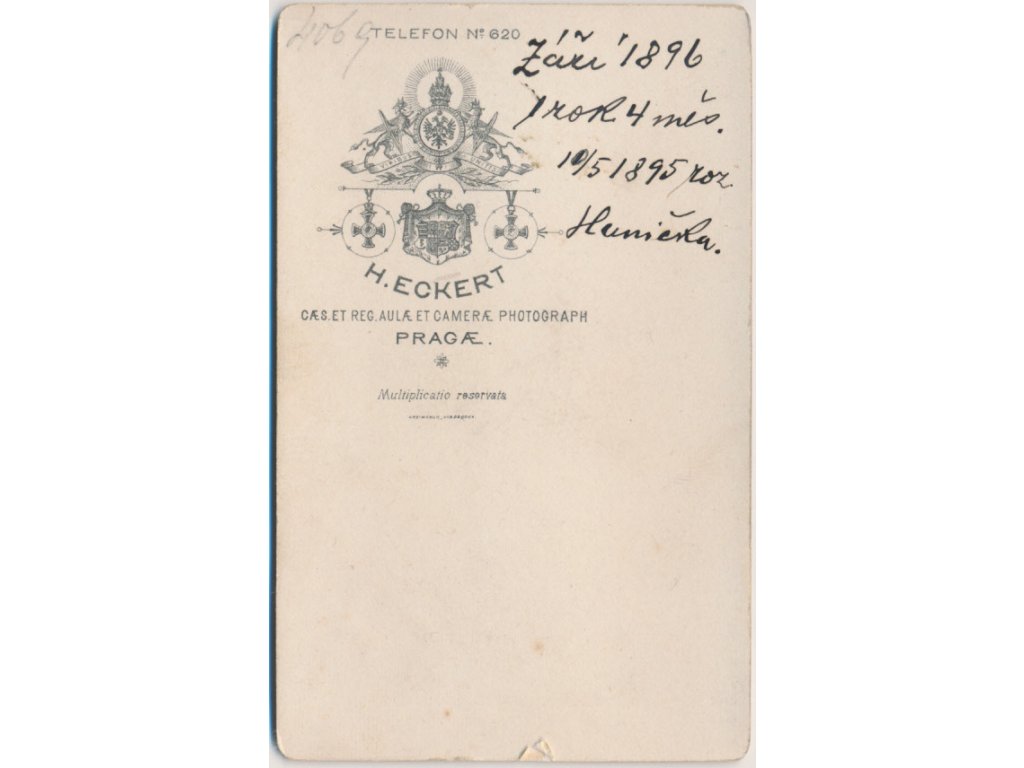 4069
TELEFON Nº 620
Září 1896
1 rok 4 měs.
10/5 1895 roz
Hanička.
VIRIBUS UNITIS
H. ECKERT
CÆS. ET REG. AULÆ ET CAMERÆ PHOTOGRAPH
PRAGÆ.
Multiplicatio reservata